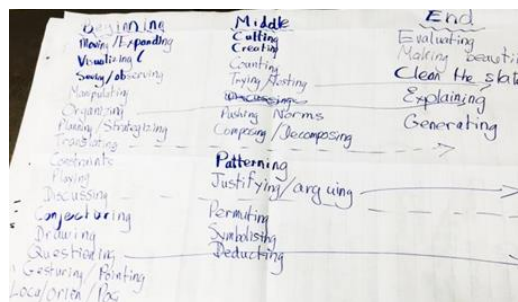 Beginning
Moving/Expanding
Visualizing (
Seeing/observing
Manipulating
Organizing
Planning/Strategizing
Translating
Constraints
Playing
Discussing
Conjecturing
Drawing
Questioning
Gesturing/Pointing
Middle
Cutting
Creating
Counting
Trying/Testing
Discussing
Pushing Norms
Composing/Decomposing
Patterning
Justifying/arguing
Permuting
Symbolising
Deducting
End
Evaluating
Making beauti
Clean the slat
Explaining
Generating